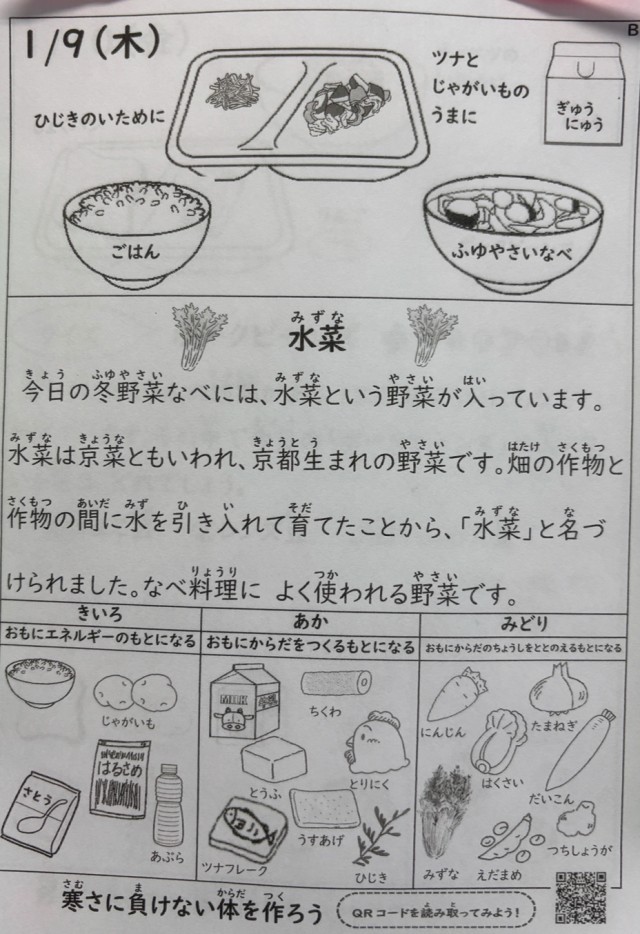 B
1/9(木)
ひじきのいために
ツナと
じゃがいもの
うまに
ぎゅう
にゅう
ごはん
ふゆやさいなべ
みずな
水菜
きょう ふゆやさい みずな やさい はい
今日の冬野菜なべには、水菜という野菜が入っています。
みずな きょうな きょうと う やさい はたけ さくもつ
水菜は京菜ともいわれ、京都生まれの野菜です。畑の作物と
さくもつ あいだ みず ひ い そだ みずな な
作物の間に水を引き入れて育てたことから、「水菜」と名づ
りょうり つか やさい
けられました。なべ料理に よく使われる野菜です。
きいろ
おもにエネルギーのもとになる
じゃがいも
はるさめ
さとう
あぶら
あか
おもにからだをつくるもとになる
MILK
ちくわ
とうふ
とりにく
うすあげ
ツナフレーク
ひじき
みどり
おもにからだのちょうしをととのえるもとになる
にんじん
たまねぎ
はくさい
だいこん
みずな
えだまめ
つちしょうが
さむ ま からだ つく
寒さに負けない体を作ろう
よ と
QRコードを読み取ってみよう!